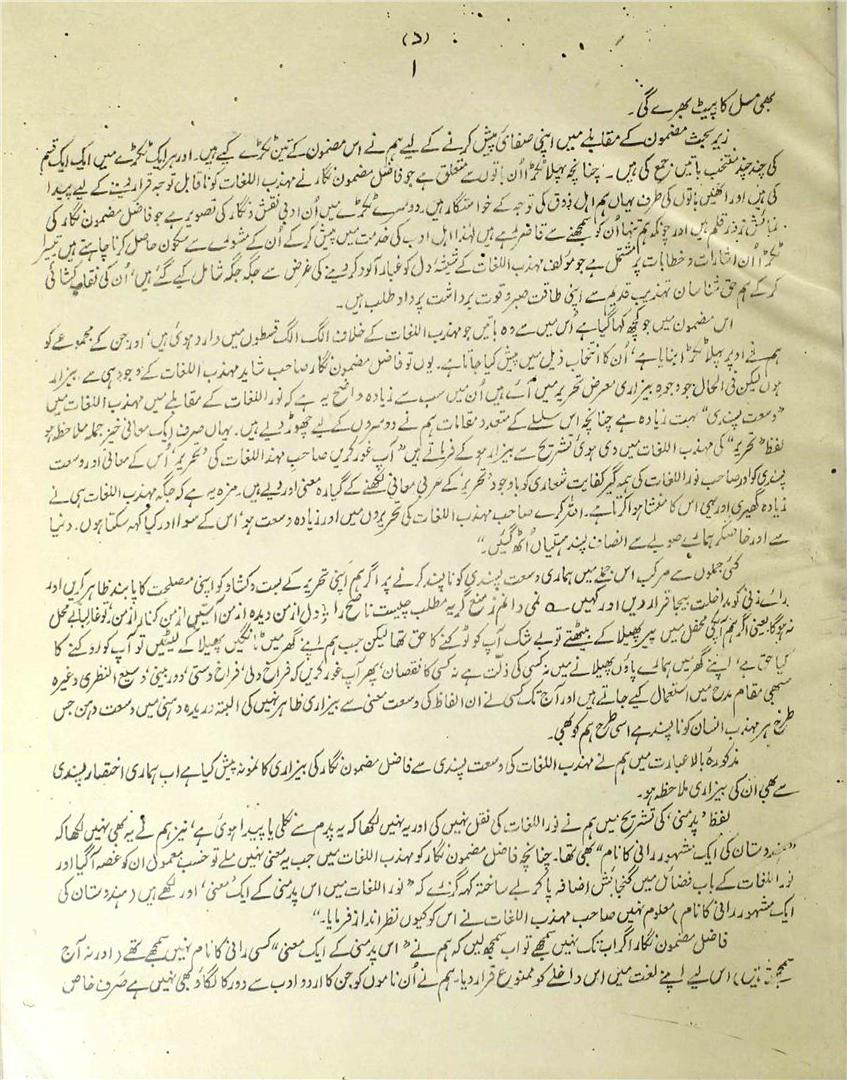 (د)
ا
بھی مسل کا پیٹ بھرے گی۔
زیر بحث مضمون کے مقابلے میں اپنی صفائی پیش کرنے کے لیے ہم نے اس مضمون کے تین ٹکڑے کیے ہیں۔ اور ہر ایک ٹکڑے میں ایک ایک قسم
کی چند چند منتخب باتیں جمع کی ہیں۔ چنانچہ پہلا ٹکڑا اُن باتوں سے متعلق ہے جو فاضل مضمون نگار نے مہذب اللغات کو ناقابل توجہ قرار دینے کے لیے پیدا
کی ہیں اور انھیں باتوں کی طرف یہاں ہم اہل ذوق کی توجہ کے خواستگار ہیں۔ دوسرے ٹکڑے میں اُن ادبی نقش و نگار کی تصویر ہے جو فاضل مضمون نگار کی
نمائش زور قلم ہیں اور چونکہ ہم تنہا اُن کو سمجھنے سے قاصر رہے ہیں لہٰذا اہل ادب کی خدمت میں پیش کر کے اُن کے مشورے سے سکون حاصل کرنا چاہتے ہیں تیسرا
ٹکڑا اُن اشارات و خطابات پر مشتمل ہے جو مؤلف مہذب اللغات کے شیشۂ دل کو غبار آلود کر دینے کی غرض سے جگہ جگہ شامل کیے گئے ہیں، اُن کی نقاب کشائی
کر کے ہم حق شناسان تہذیب قدیم سے اپنی طاقت صبر و قوت برداشت پر داد طلب ہیں۔
اس مضمون میں جو کچھ کہا گیا ہے اُس میں سے وہ باتیں جو مہذب اللغات کے خلاف الگ الگ قسطوں میں وارد ہوئی ہیں، اور جن کے مجموعے کو
ہم نے اوپر پہلا ٹکڑا بنایا ہے، اُن کا انتخاب ذیل میں پیش کیا جاتا ہے۔ یوں تو فاضل مضمون نگار صاحب شاید مہذب اللغات کے وجود ہی سے بیزار
ہوں لیکن فی الحال جو وجوہ بیزاری معرض تحریر میں آئے ہیں اُن میں سب سے زیادہ واضح یہ ہے کہ نور اللغات کے مقابلے میں مہذب اللغات میں
”وسعت پسندی“ بہت زیادہ ہے چنانچہ اس سلسلے کے متعدد مقامات ہم نے دوسروں کے لیے چھوڑ دیے ہیں۔ یہاں صرف ایک معانی خیز جملہ ملاحظہ ہو
لفظ ”تحریم“ کی مہذب اللغات میں دی ہوئی تشریح سے بیزار ہو کے فرماتے ہیں ”آپ غور کریں صاحب مہذب اللغات کی ’تحریم‘ اُس کے معانی اور وسعت
پسندی کو اور صاحب نور اللغات کی ہمہ گیر کفایت شعاری کو باوجود ’تحریم‘ کے عربی معانی لکھنے کے گیارہ معنی اور دیے ہیں۔ مزہ یہ ہے کہ جگہ مہذب اللغات ہی نے
زیادہ گھیری اور یہی اس کا منشا ہوا کرتا ہے۔ اللہ کرے صاحب مہذب اللغات کی تحریروں میں اور زیادہ وسعت ہو، اس کے سوا اور کیا کہہ سکتا ہوں۔ دنیا
سے اور خاصکر ہمارے صوبے سے انصاف پسند ہستیاں اُٹھ گئیں۔“
کئی جملوں سے مرکب اس جملے میں ہماری وسعت پسندی کو ناپسند کرنے پر اگر ہم اپنی تحریر کے بست و کشاد کو اپنی مصلحت کا پابند ظاہر کریں اور
رائے زنی کو مداخلت بیجا قرار دیں اور کہیں ؎ نمی دانم ز منع گریہ مطلب چیست ناصح را ؛ دل از من دیدہ از من آستیں از من کنار از من، تو غالباً بے محل
نہ ہوگا یعنی اگر ہم آپکی محفل میں پیر پھیلا کے بیٹھتے تو بے شک آپ کو ٹوکنے کا حق تھا لیکن جب ہم اپنے گھر میں ٹانگیں پھیلا کے لیٹیں تو آپ کو روکنے کا
کیا حق ہے، اپنے گھر میں ہمارے پاؤں پھیلانے میں نہ کسی کی ذلّت ہے نہ کسی کا نقصان، پھر آپ غور کریں کہ فراخ دلی، فراخ دستی، دور بینی، وسیع النظری وغیرہ
سبھی مقام مدح میں استعمال کیے جاتے ہیں اور آج تک کسی نے ان الفاظ کی وسعت معنی سے بیزاری ظاہر نہیں کی البتہ دریدہ دہنی میں وسعت دہن جس
طرح ہر مہذب انسان کو ناپسند ہے اسی طرح ہم کو بھی۔
مذکورۂ بالا عبارت میں ہم نے مہذب اللغات کی وسعت پسندی سے فاضل مضمون نگار کی بیزاری کا نمونہ پیش کیا ہے اب ہماری اختصار پسندی
سے بھی اُن کی بیزاری ملاحظہ ہو۔
لفظ ’پدمنی‘ کی تشریح میں ہم نے نور اللغات کی نقل نہیں کی اور یہ نہیں لکھا کہ یہ پدم سے نکلی یا پیدا ہوئی ہے، نیز ہم نے یہ بھی نہیں لکھا کہ
”ہندوستان کی ایک مشہور رانی کا نام“ بھی تھا۔ چنانچہ فاضل مضمون نگار کو مہذب اللغات میں جب یہ معنی نہیں ملے تو حسب معمول ان کو غصہ آگیا اور
نور اللغات کے باب فضائل میں گنجائش اضافہ پا کر بے ساختہ کہہ گزرے کہ ”نور اللغات میں اس پدمنی کے ایک معنی، اور لکھے ہیں (ہندوستان کی
ایک مشہور رانی کا نام) معلوم نہیں صاحب مہذب اللغات نے اس کو کیوں نظر انداز فرمایا۔“
فاضل مضمون نگار اگر اب تک نہیں سمجھے تو اب سمجھ لیں کہ ہم نے ”اس پدمنی کے ایک معنی“ کسی رانی کا نام نہیں سمجھے تھے (اور نہ آج
سمجھتے ہیں) اس لیے اپنے لغت میں اس داخلے کو ممنوع قرار دیا۔ ہم نے اُن ناموں کو جن کا اردو ادب سے دور کا لگاؤ بھی نہیں ہے صَرف خاص